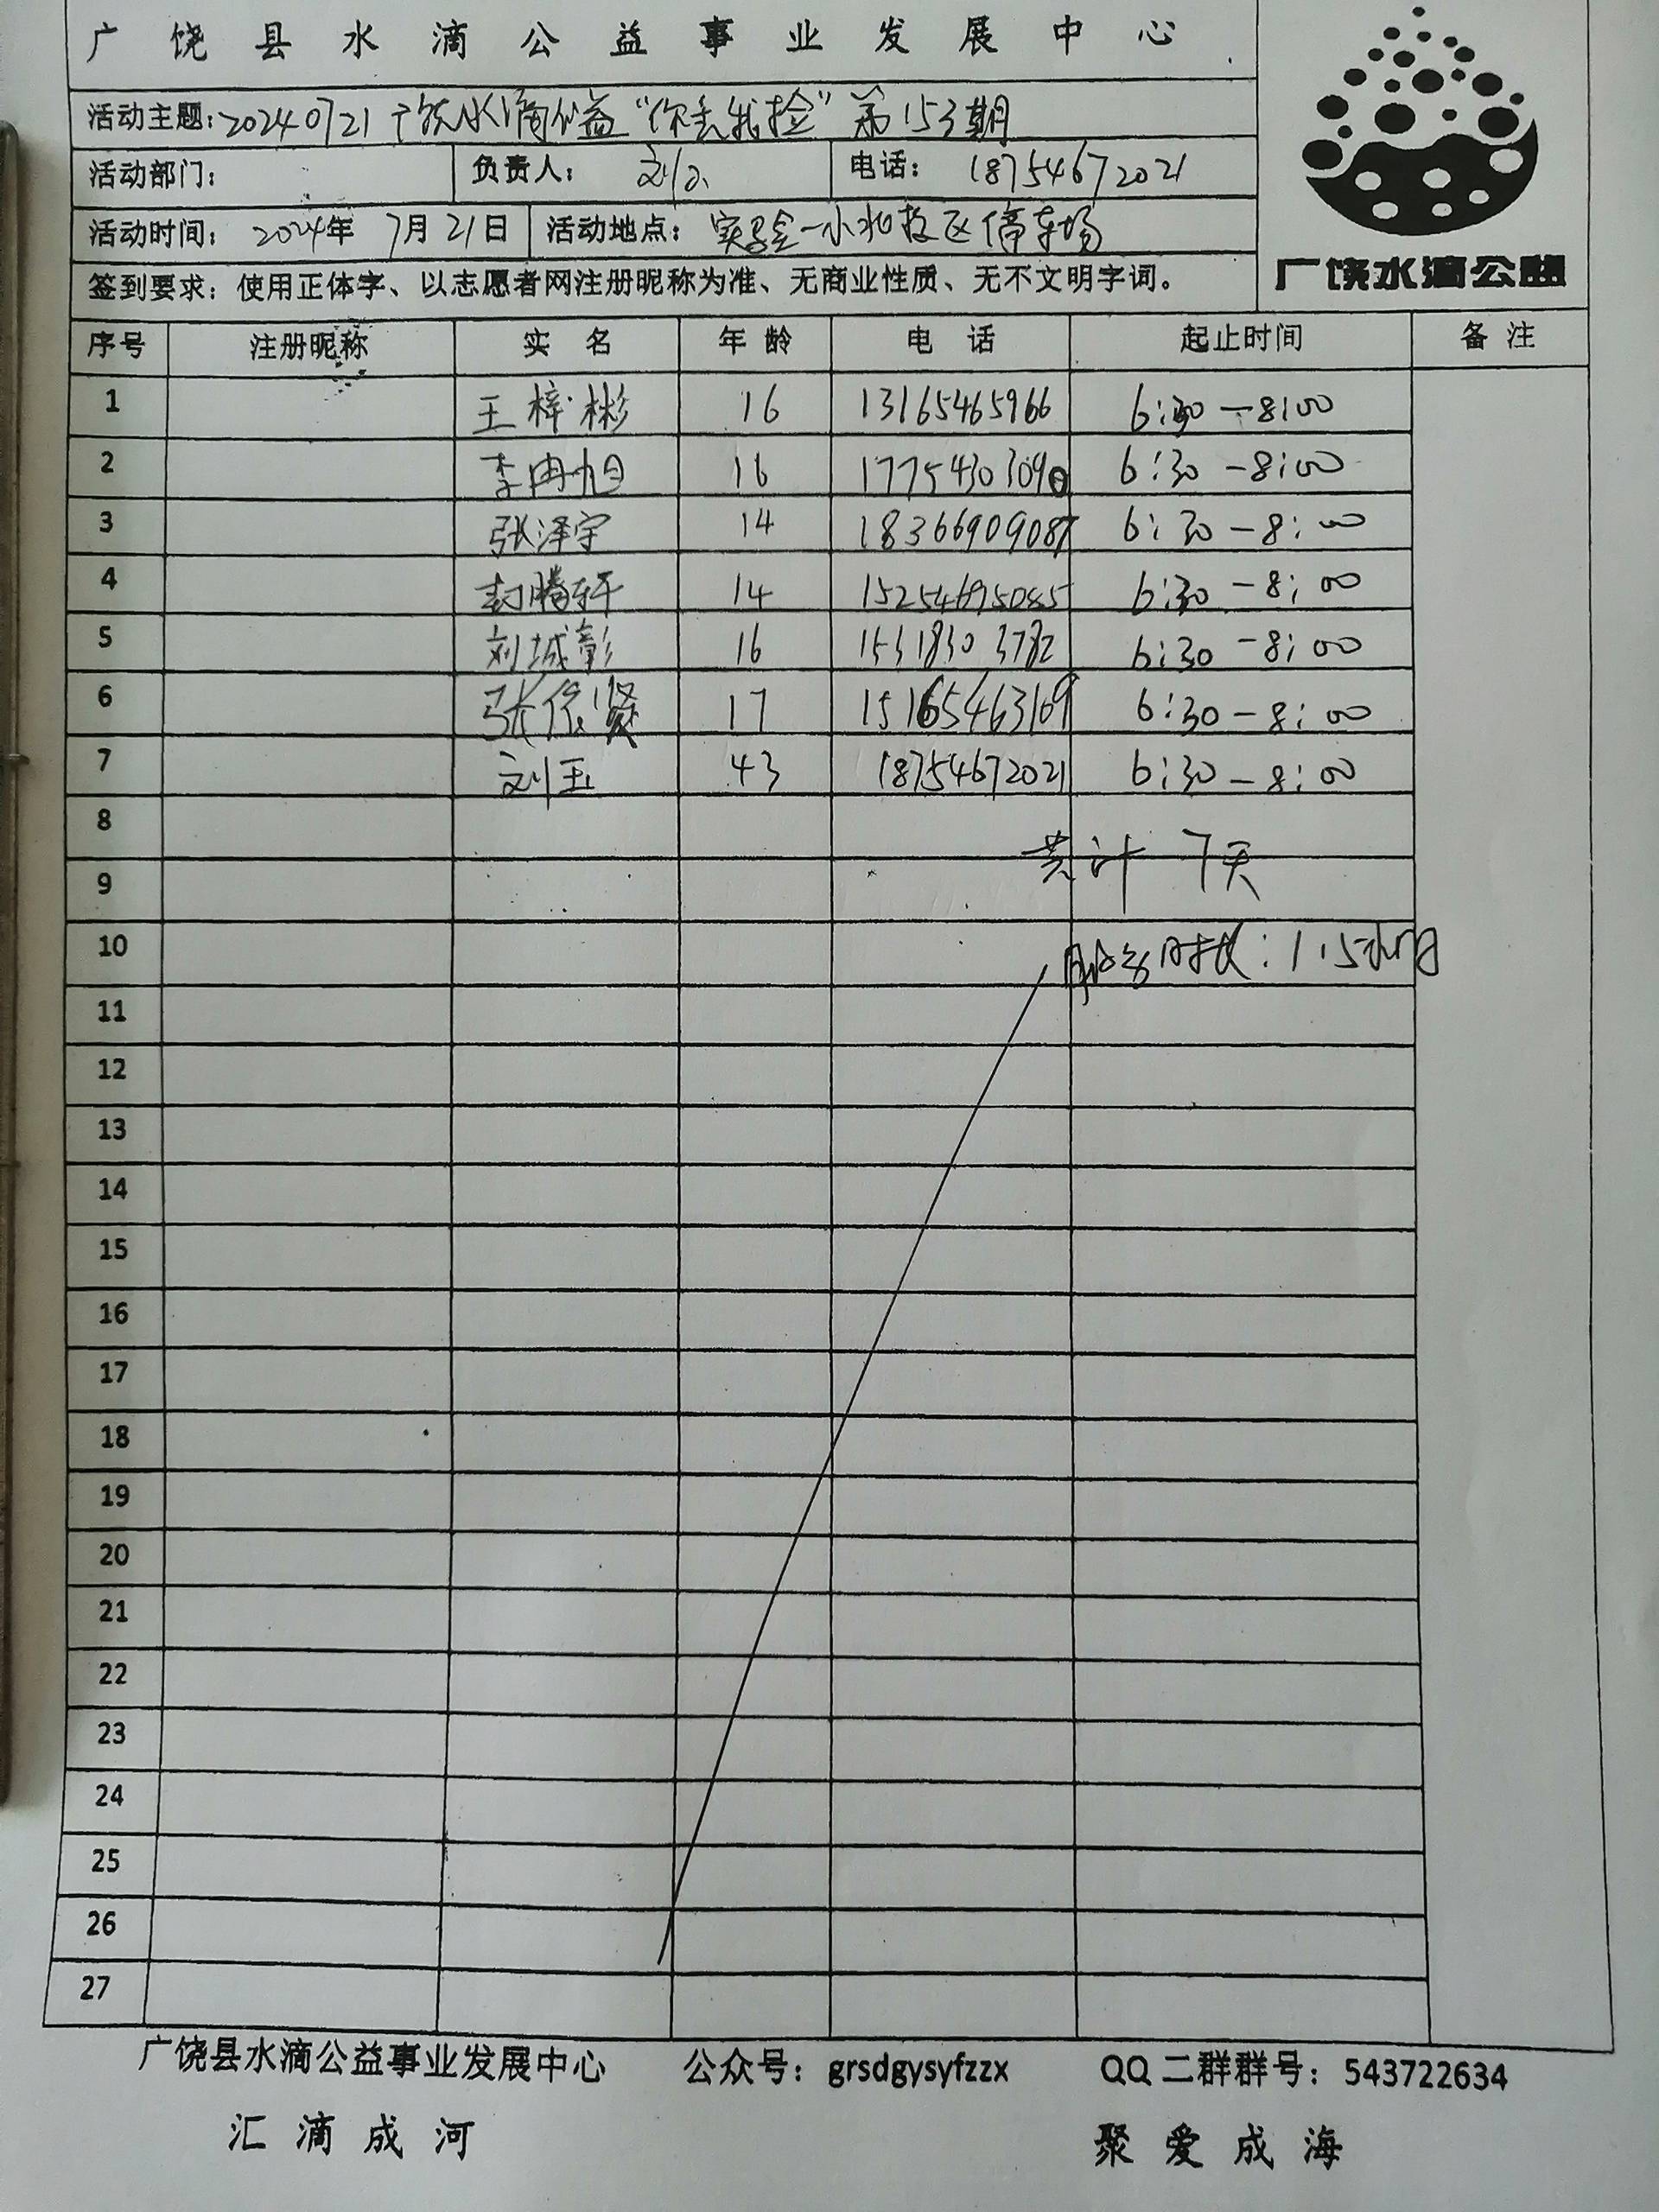 广饶县水滴公益事业发展中心
活动主题：20240721广饶水滴公益“你丢我捡”第153期
活动部门： 负责人： 刘玉 电话： 18754672021
活动时间： 2024年 7月21日 活动地点： 实验一小北校区停车场
签到要求：使用正体字、以志愿者网注册昵称为准、无商业性质、无不文明字词。
广饶水滴公益
序号 注册昵称 实名 年龄 电话 起止时间 备注
1 王梓彬 16 13165465966 6:30-8:00
2 李冉旭 16 17754303090 6:30-8:00
3 张泽宇 14 18366909087 6:30-8:00
4 封腾轩 14 15254695085 6:30-8:00
5 刘城彰 16 15318303782 6:30-8:00
6 张依贤 17 15165463169 6:30-8:00
7 刘玉 43 18754672021 6:30-8:00
8
共计 7天
9
10 服务时长：1.5小时
11
12
13
14
15
16
17
18
19
20
21
22
23
24
25
26
27
广饶县水滴公益事业发展中心 公众号：grsdgysyfzzx QQ二群群号：543722634
汇滴成河 聚爱成海